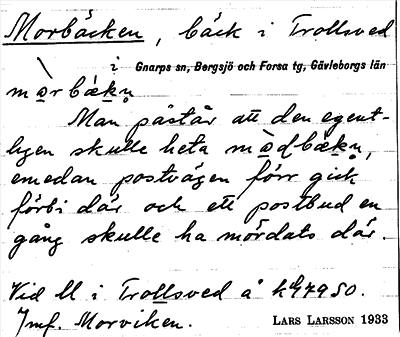 Morbäcken, bäck i Trollsved
i Gnarps sn, Bergsjö och Forsa tg, Gävleborgs län
Man påstår att den egent-
ligen skulle heta
emedan postvägen förr gick
förbi där och ett postbud en
gång skulle ha mördats där.
Vid M i Trollsved å
Jmf. Morviken. LARS LARSSON 1933